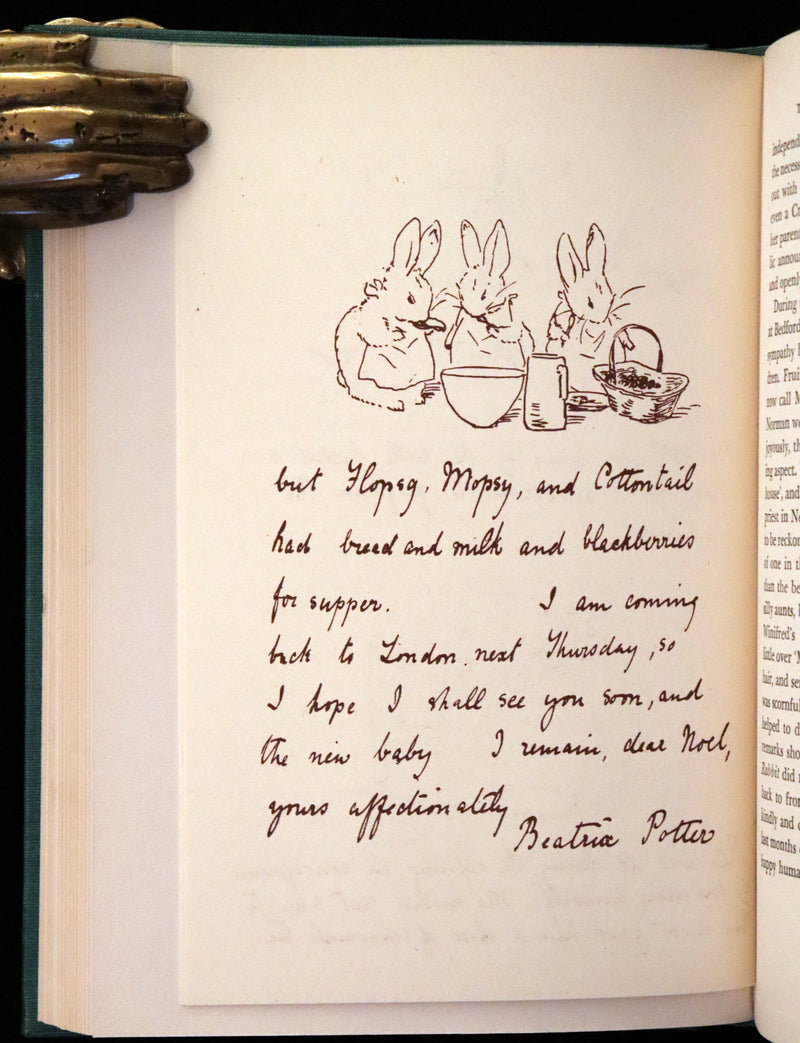 but Flopsy, Mopsy, and Cottontail
had bread and milk and blackberries
for supper. I am coming
back to London next Thursday, so
I hope I shall see you soon, and
the new baby I remain, dear Noel,
yours affectionately
Beatrix Potter
independ
the necess
out with
even a Cr
her paren
lic annou
and openly
During
at Bedford
sympathy
dren. Frui
now call M
Norman we
joyously, th
ing aspect.
house', and
priest in No
to be reckon
of one in th
than the be
silly aunts,
Winifred's
little over 'N
hair, and se
was scornful
helped to d
remarks sho
Rabbit did
back to fro
kindly and
last months
happy huma